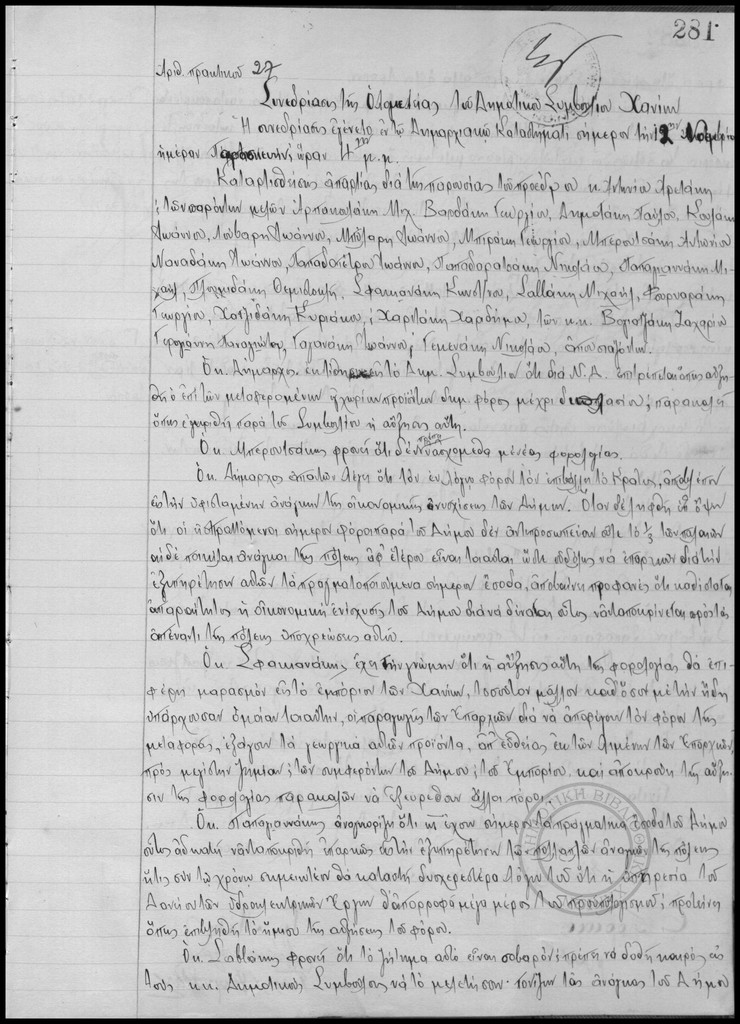 281
Αριθ. πρακτικού 27
Συνεδρίασις της Ολομελείας του Δημοτικού Συμβουλίου Χανίων
Η συνεδρίασις εγένετο εν τω Δημαρχιακώ Καταστήματι σήμερον την 12ην Νοεμβρίου
ημέραν Παρασκευήν, ώραν 4ην μ.μ.
Καταρτισθείσης απαρτίας δια της παρουσίας του προέδρου κ. Αντωνίου
των παρόντων μελών Μιχ. Βαρδάκη Γεωργίου, Δημοτάκη Παύλου,
Ιωάννου, Λούβαρη Ιωάννου, Μπόλαρη Ιωάννου, Μπιράκη Γεωργίου, Μπερουτσάκη Αντωνίου
Ναναδάκη Ιωάννου, Παπαδοπέτρου Ιωάννου, Νικολάου, Παπαγιαννάκη Μι-
χαήλ, Πλουμιδάκη Θεμιστοκλή, Σφακιανάκη Κων/τίνου, Μιχαήλ, Φουρναράκη
Γεωργίου, Χατζιδάκη Κυριάκου, Χαριτάκη, των κ.κ. Ζαχαρία
Παναγιώτου, Ιωάννου, Γεμενάκη Νικολάου, απουσιαζόντων.
Ο κ. Δήμαρχος εκτίθησι εις το Δημ. Συμβούλιον ότι δια Ν.Δ. επιτρέπεται όπως αυξη-
θή ο επί των μεταφερομένων εγχωρίων προϊόντων δημ. φόρος μέχρι διπλασίου, παρακαλεί
όπως εγκριθή παρά του Συμβουλίου η αύξησις αύτη.
Ο κ. Μπερουτσάκης φρονεί ότι δεν πρέπει να ασχολούμεθα με νέας φορολογίας.
Ο κ. Δήμαρχος απαντών λέγει ότι τον εν λόγω φόρον τον επιβάλλει το Κράτος, αποβλέπον
εις την υφισταμένην ανάγκην της οικονομικής ενισχύσεως των Δήμων. Όταν δε ληφθή υπ' όψιν
ότι οι εισπραττόμενοι σήμερον φόροι παρά του Δήμου δεν αντιπροσωπεύουν ούτε το 1/3 των παλαιών
αι δε ποικίλαι ανάγκαι της πόλεως αφ' ετέρου είναι τοιαύται ώστε ουδόλως να επαρκούν δια την
εξυπηρέτησιν αυτών τα πραγματοποιούμενα σήμερον έσοδα, αποβαίνει προφανές ότι καθίσταται
απαραίτητος η οικονομική ενίσχυσις του Δήμου δια να δύναται ούτος να ανταποκρίνεται προς τας
απέναντι της πόλεως υποχρεώσεις αυτού.
Ο κ. Σφακιανάκης έχει την γνώμην ότι η αύξησις αύτη της φορολογίας θα επι-
φέρη μαρασμόν εις το εμπόριον των Χανίων, τοσούτον μάλλον καθ' όσον με την ήδη
υπάρχουσαν ομοίαν τοιαύτην, οι παραγωγείς των Επαρχιών δια να αποφύγουν τον φόρον της
μεταφοράς, εξάγουν τα γεωργικά αυτών προϊόντα, απ' ευθείας εκ των λιμένων των Επαρχιών,
προς μεγίστην ζημίαν των συμφερόντων του Δήμου, του Εμπορίου, και αποκρούει της αύξη-
σιν της φορολογίας παρακαλών να εξευρεθούν άλλοι πόροι.
Ο κ. Παπαγιαννάκης αναγνωρίζει ότι με έχουν σήμερον τα πραγματικά έσοδα του Δήμου
ούτος αδυνατεί να ανταποκριθή επαρκώς εις την εξυπηρέτησιν των πολλαπλών αναγκών της πόλεως
ήτις συν τω χρόνω σημειωτέον θα καταστή δυσχερεστέρα λόγω του ότι η υπηρεσία του
Δανείου των υδροηλεκτρικών Έργων θ' απορροφά μέγα μέρος του προϋπολογισμού, προτείνει
όπως επιβληθή το ήμισυ της αυξήσεως του φόρου.
Ο κ. φρονεί ότι το ζήτημα αυτό είναι σοβαρόν πρέπει να δοθή καιρός εις
τους κκ. Δημοτικούς Συμβούλους να το μελετήσουν τονίζων τας ανάγκας του Δήμου